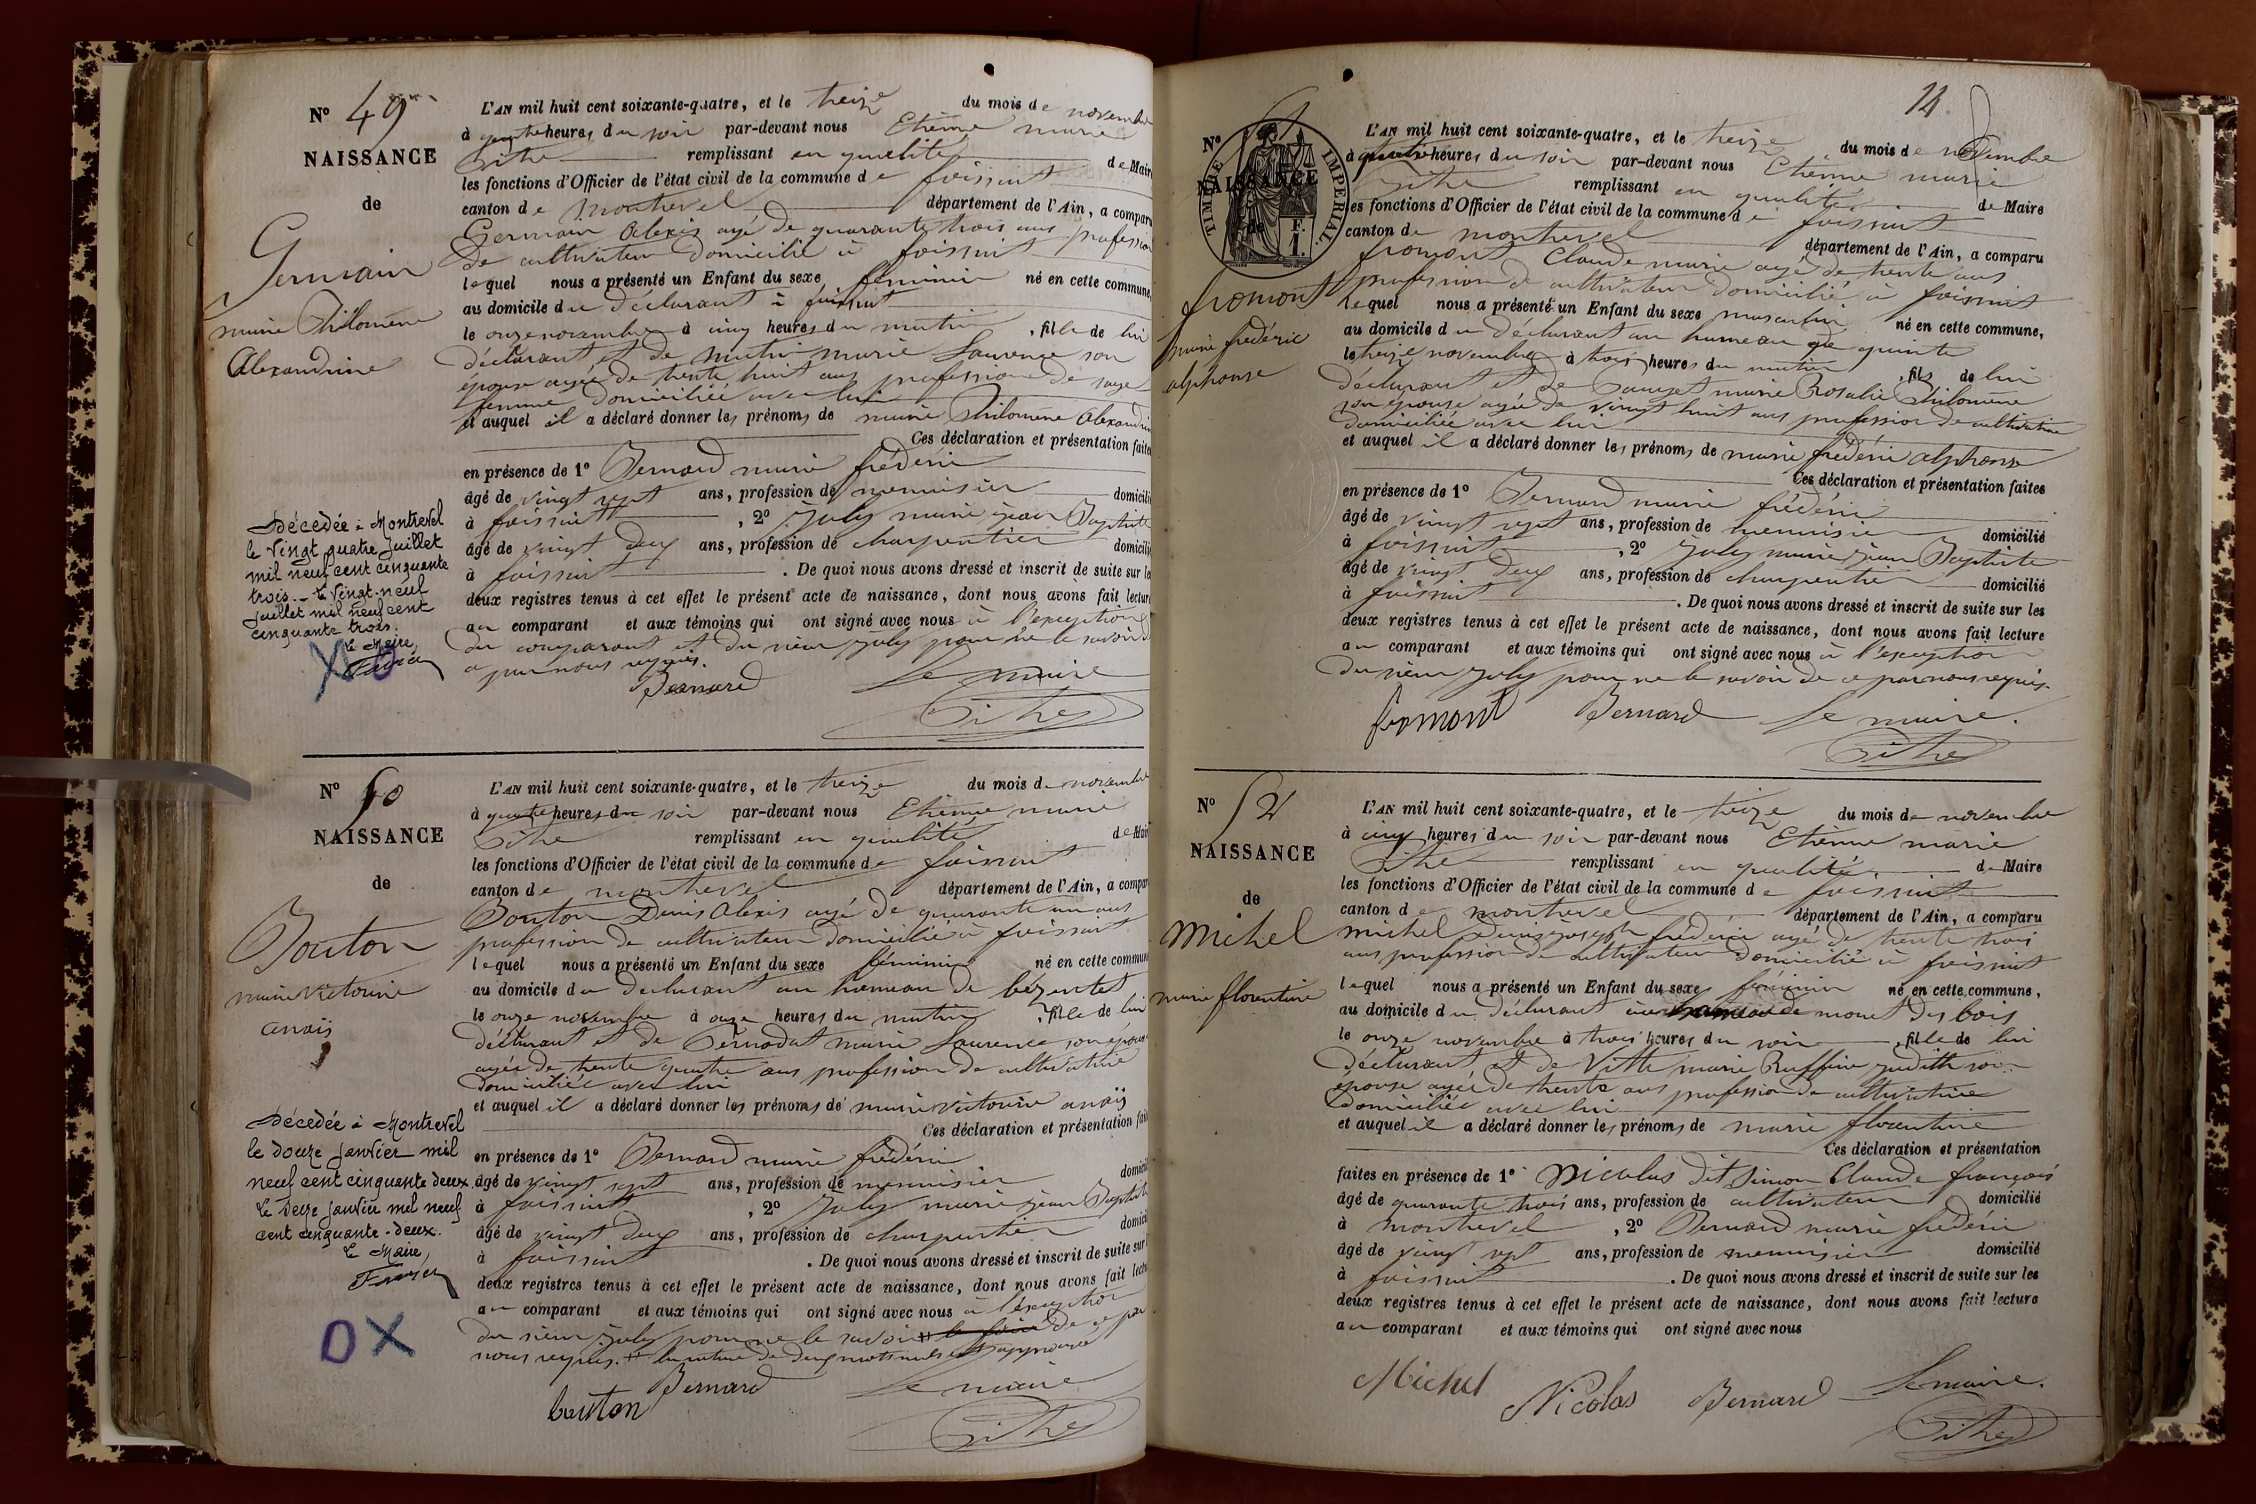 N° 49
NAISSANCE
de
Germain
marie Philomène
Alexandrine
Décédée à Montrevel
le vingt quatre juillet
mil neuf cent cinquante
trois. - Le vingt-neuf
juillet mil neuf cent
cinquante trois.
Le Maire,
X O
L'AN mil huit cent soixante-quatre, et le treize du mois de novembre
à quatre heures du soir par-devant nous Etienne marie
remplissant en qualité de Maire
les fonctions d'Officier de l'état civil de la commune de foissiat
canton de montrevel département de l'Ain, a comparu
Germain Alexis agé de quarante trois ans profession
de cultivateur domicilié à foissiat
lequel nous a présenté un Enfant du sexe féminin né en cette commune,
au domicile du déclarant à foissiat
le onze novembre à cinq heures du matin, fille de lui
déclarant et de mutin marie Laurence son
épouse agée de trente huit ans profession de sage
femme domiciliée avec lui
et auquel il a déclaré donner les prénoms de marie Philomène Alexandrine
Ces déclaration et présentation faites
en présence de 1° Bernard marie frédéric
âgé de vingt sept ans, profession de menuisier domicilié
à foissiat, 2° Joly marie jean Baptiste
âgé de vingt deux ans, profession de charpentier domicilié
à foissiat. De quoi nous avons dressé et inscrit de suite sur les
deux registres tenus à cet effet le présent acte de naissance, dont nous avons fait lecture
au comparant et aux témoins qui ont signé avec nous à l'exception
du comparant et du sieur Joly pour ne le savoir de
ce par nous requis.
Bernard Le maire
N° 50
NAISSANCE
de
Bouton
marie victorine
anaïs
Décédée à Montrevel
le douze janvier mil
neuf cent cinquante deux.
Le seize janvier mil neuf
cent cinquante-deux.
Le Maire,
O X
L'AN mil huit cent soixante-quatre, et le treize du mois de novembre
à quatre heures du soir par-devant nous Etienne marie
remplissant en qualité de Maire
les fonctions d'Officier de l'état civil de la commune de foissiat
canton de montrevel département de l'Ain, a comparu
Bouton Denis Alexis agé de quarante un ans
profession de cultivateur domicilié à foissiat
lequel nous a présenté un Enfant du sexe féminin né en cette commune
au domicile du déclarant au hameau de bézentet
le onze novembre à onze heures du matin, fille de lui
déclarant et de marie Laurence son épouse
agée de trente quatre ans profession de cultivatrice
domiciliée avec lui
et auquel il a déclaré donner les prénoms de marie victorine anaïs
Ces déclaration et présentation faites
en présence de 1° Bernard marie frédéric
âgé de vingt sept ans, profession de menuisier domicilié
à foissiat, 2° Joly marie jean Baptiste
âgé de vingt deux ans, profession de charpentier domicilié
à foissiat. De quoi nous avons dressé et inscrit de suite sur
deux registres tenus à cet effet le présent acte de naissance, dont nous avons fait lecture
au comparant et aux témoins qui ont signé avec nous à l'exception
du sieur Joly pour ne le savoir de ce par
nous requis. la rature de deux mots nuls est approuvée
bouton Bernard Le maire
14
N°
TIMBRE IMPERIAL
1 F.
NAISSANCE
de
fromont
marie frédéric
alphonse
L'AN mil huit cent soixante-quatre, et le treize du mois de novembre
à quatre heures du soir par-devant nous Etienne marie
remplissant en qualité de Maire
les fonctions d'Officier de l'état civil de la commune de foissiat
canton de montrevel département de l'Ain, a comparu
fromont Claude marie agé de trente ans
profession de cultivateur domicilié à foissiat
lequel nous a présenté un Enfant du sexe masculin né en cette commune,
au domicile du déclarant au hameau de
le treize novembre à trois heures du matin, fils de lui
déclarant et de marie Rosalie Philomène
son épouse agée de vingt huit ans profession de cultivatrice
domiciliée avec lui
et auquel il a déclaré donner les prénoms de marie frédéric alphonse
Ces déclaration et présentation faites
en présence de 1° Bernard marie frédéric
âgé de vingt sept ans, profession de menuisier domicilié
à foissiat, 2° Joly marie jean Baptiste
âgé de vingt deux ans, profession de charpentier domicilié
à foissiat. De quoi nous avons dressé et inscrit de suite sur les
deux registres tenus à cet effet le présent acte de naissance, dont nous avons fait lecture
au comparant et aux témoins qui ont signé avec nous à l'exception
du sieur Joly pour ne le savoir de ce par nous requis
fromont Bernard Le maire.
N° 52
NAISSANCE
de
Michel
marie florentine
L'AN mil huit cent soixante-quatre, et le treize du mois de novembre
à cinq heures du soir par-devant nous Etienne marie
remplissant en qualité de Maire
les fonctions d'Officier de l'état civil de la commune de foissiat
canton de montrevel département de l'Ain, a comparu
michel Denis joseph frédéric agé de trente trois
ans profession de cultivateur domicilié à foissiat
lequel nous a présenté un Enfant du sexe féminin né en cette commune,
au domicile du déclarant des bois
le onze novembre à trois heures du soir, fille de lui
déclarant et de marie Ruffine judith son
épouse agée de trente ans profession de cultivatrice
domiciliée avec lui
et auquel il a déclaré donner les prénoms de marie florentine
Ces déclaration et présentation
faites en présence de 1° Nicolas dit Simon Claude françois
âgé de quarante trois ans, profession de cultivateur domicilié
à montrevel, 2° Bernard marie frédéric
âgé de vingt sept ans, profession de menuisier domicilié
à foissiat. De quoi nous avons dressé et inscrit de suite sur les
deux registres tenus à cet effet le présent acte de naissance, dont nous avons fait lecture
au comparant et aux témoins qui ont signé avec nous
Michel Nicolas Bernard Le maire.